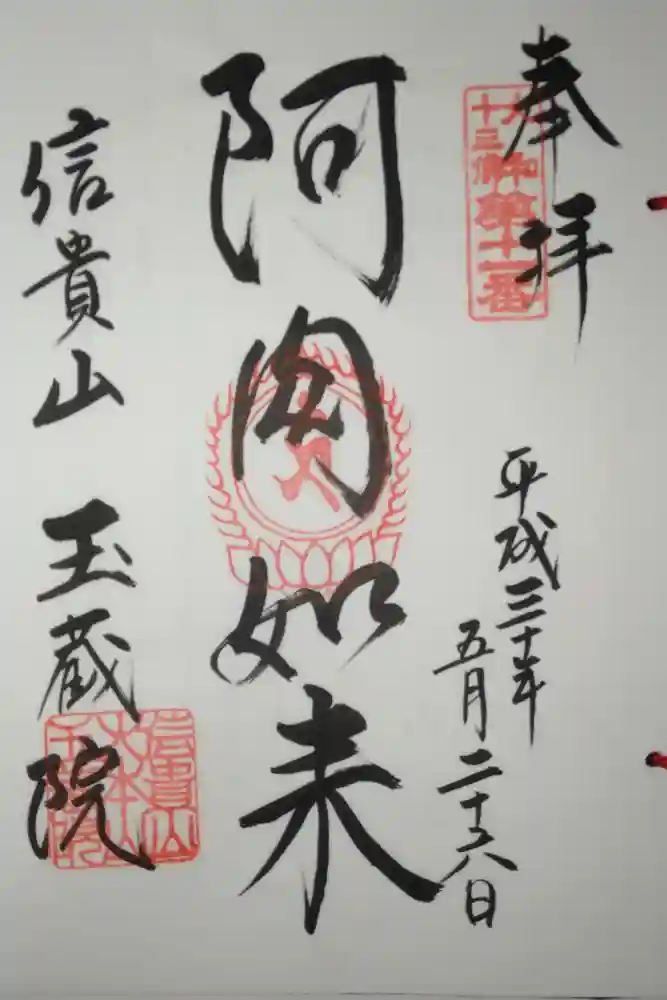 奉拝
大和
十三佛
第十一番
平成三十年
五月二十六日
阿閦如来
信貴山 玉蔵院
信貴山
大本山
千手院